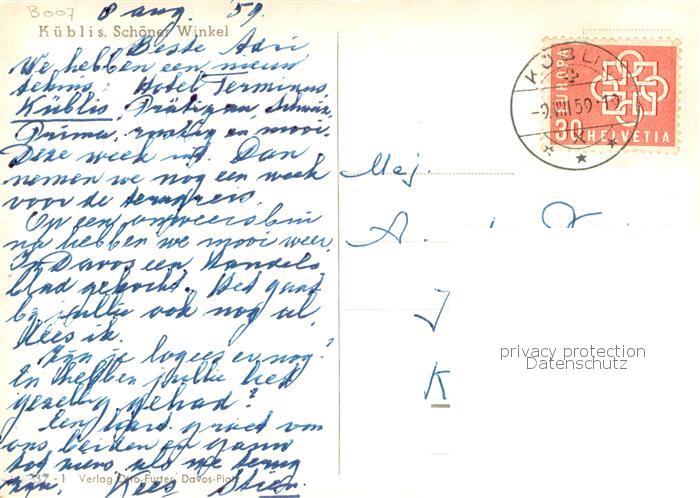 B007
8 aug. '59.
Küblis. Schöner Winkel
Beste Adri
We hebben een nieuw
adres: Hotel Terminus,
Küblis, Prätigau, Schweiz,
Prima, rustig en mooi.
Deze week nog. Dan
nemen we nog een week
voor de terugreis.
Op een onweersbui
na hebben we mooi weer.
In Davos een Handels
blad gekocht. Het gaat
bij jullie ook nog al,
lees ik.
Zijn je logees er nog?
En hebben jullie het
gezellig gehad?
Een hart. groet van
ons beiden en
tot ziens als we terug
zijn. Kees
37 - 1 Verlag Otto Furter, Davos-Platz
KÜBLIS
-9.VIII.59-19
EUROPA
30 HELVETIA
Mej.
A.
J
K
privacy protection
Datenschutz